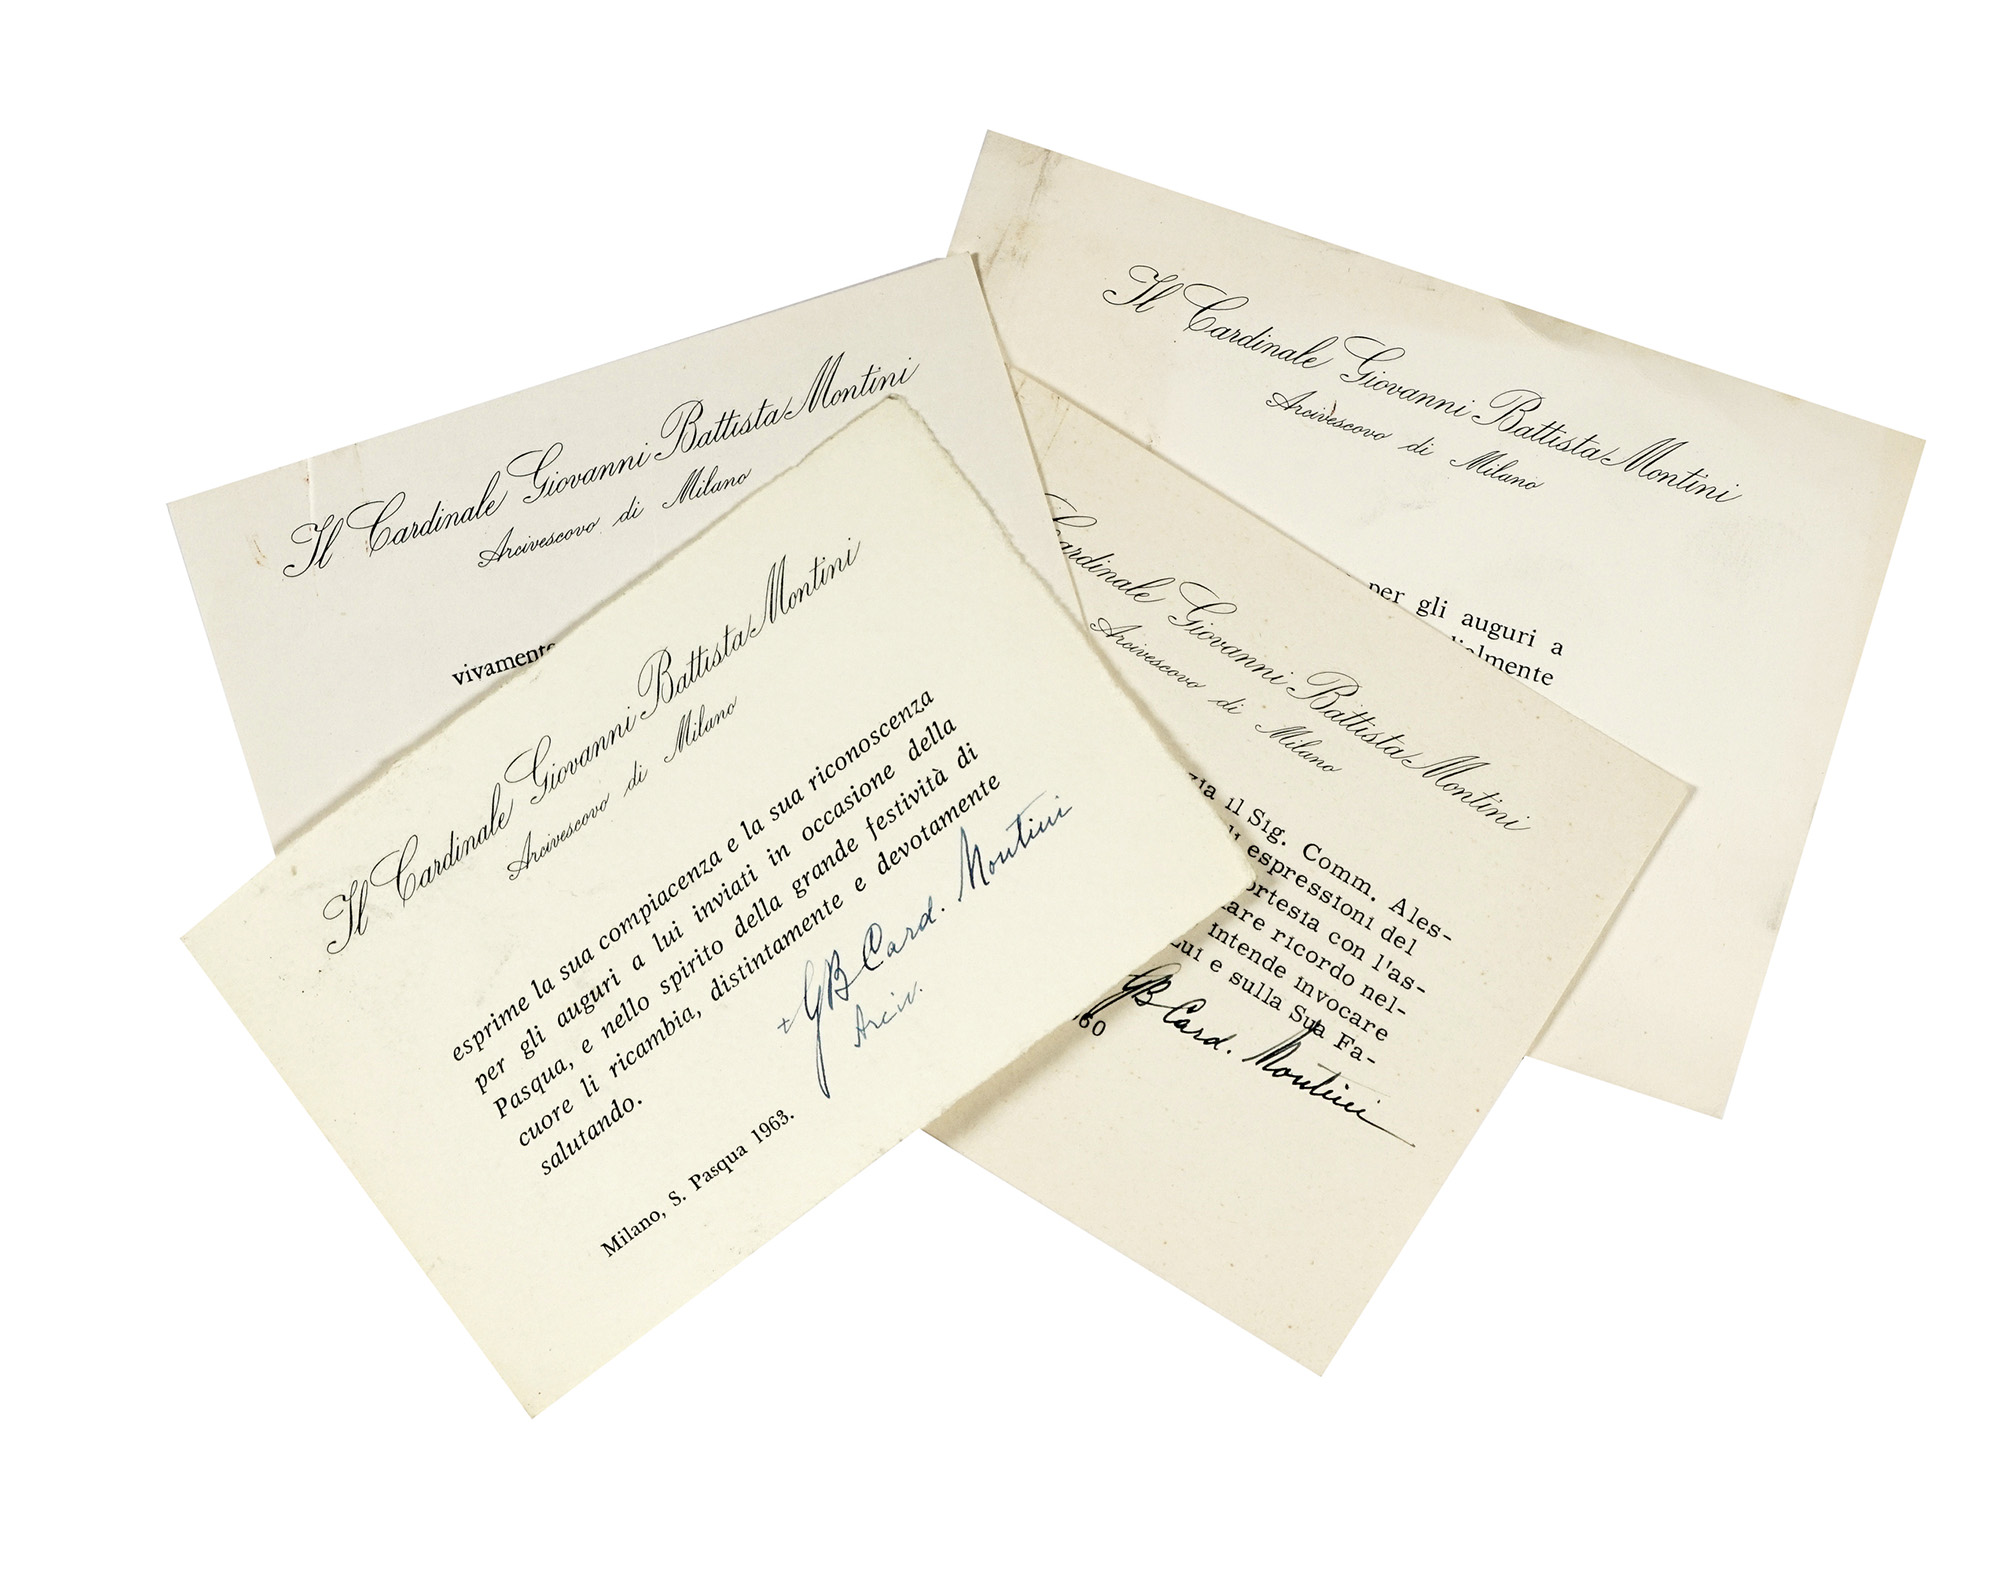 Il Cardinale Giovanni Battista Montini
Arcivescovo di Milano
per gli auguri a
Il Cardinale Giovanni Battista Montini
Arcivescovo di Milano
vivamente
Cardinale Giovanni Battista Montini
Arcivescovo di Milano
il Sig. Comm. Ales-
espressioni del
con l'as-
ricordo nel-
intende invocare
Lui e sulla Sua Fa-
GB Card. Montini
60
Il Cardinale Giovanni Battista Montini
Arcivescovo di Milano
esprime la sua compiacenza e la sua riconoscenza
per gli auguri a lui inviati in occasione della
Pasqua, e nello spirito della grande festività di
cuore li ricambia, distintamente e devotamente
salutando.
+ GB Card. Montini
Arciv.
Milano, S. Pasqua 1963.